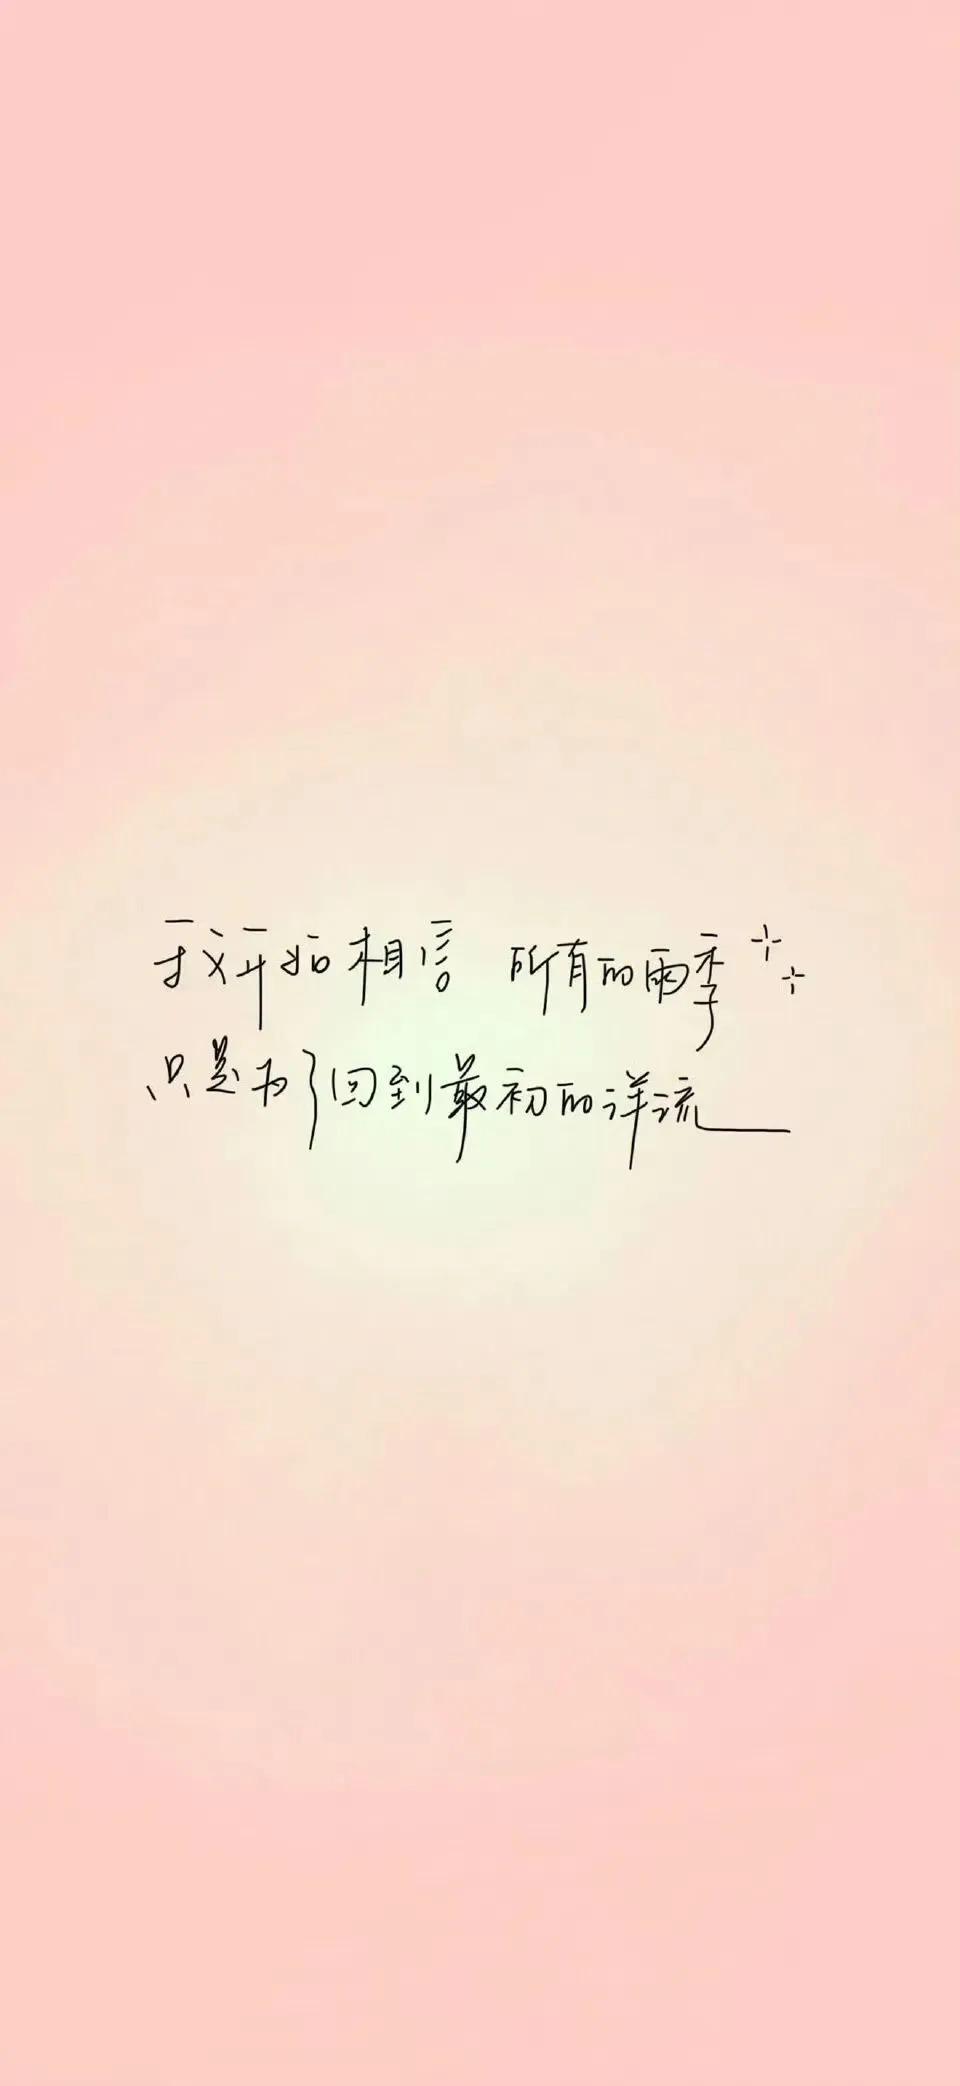 我开始相信 所有的雨季
只是为了回到最初的洋流